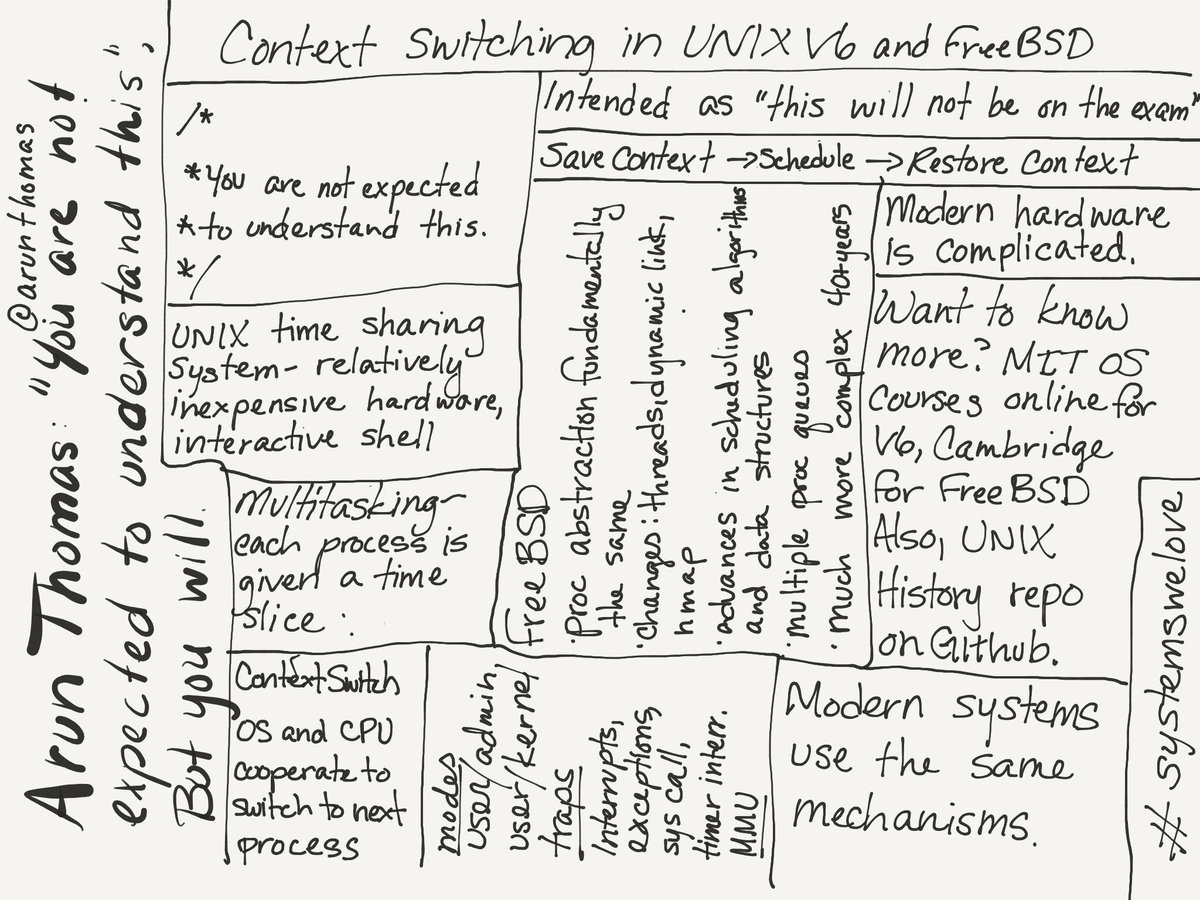 Arun Thomas: "you are not
@arunthomas
expected to understand this".
But you will.
Context Switching in UNIX V6 and FreeBSD
/*
*You are not expected
*to understand this.
*/
Intended as "this will not be on the exam"
Save Context → Schedule → Restore Context
UNIX time sharing
system- relatively
inexpensive hardware,
interactive shell
Multitasking-
each process is
given a time
slice.
Context Switch
OS and CPU
cooperate to
switch to next
process
modes
user/admin,
user/kernel
traps
Interrupts,
exceptions,
sys call,
timer interr.
MMU
FreeBSD
·Proc abstraction fundamentally
the same
·changes: threads, dynamic link,
nmap
·advances in scheduling algorithms
and data structures
·multiple proc queues
·much more complex 40+ years
Modern hardware
is complicated.
Want to know
more? MIT OS
courses online for
V6, Cambridge
for FreeBSD
Also, UNIX
History repo
on GitHub.
Modern systems
use the same
mechanisms.
# systemswelove